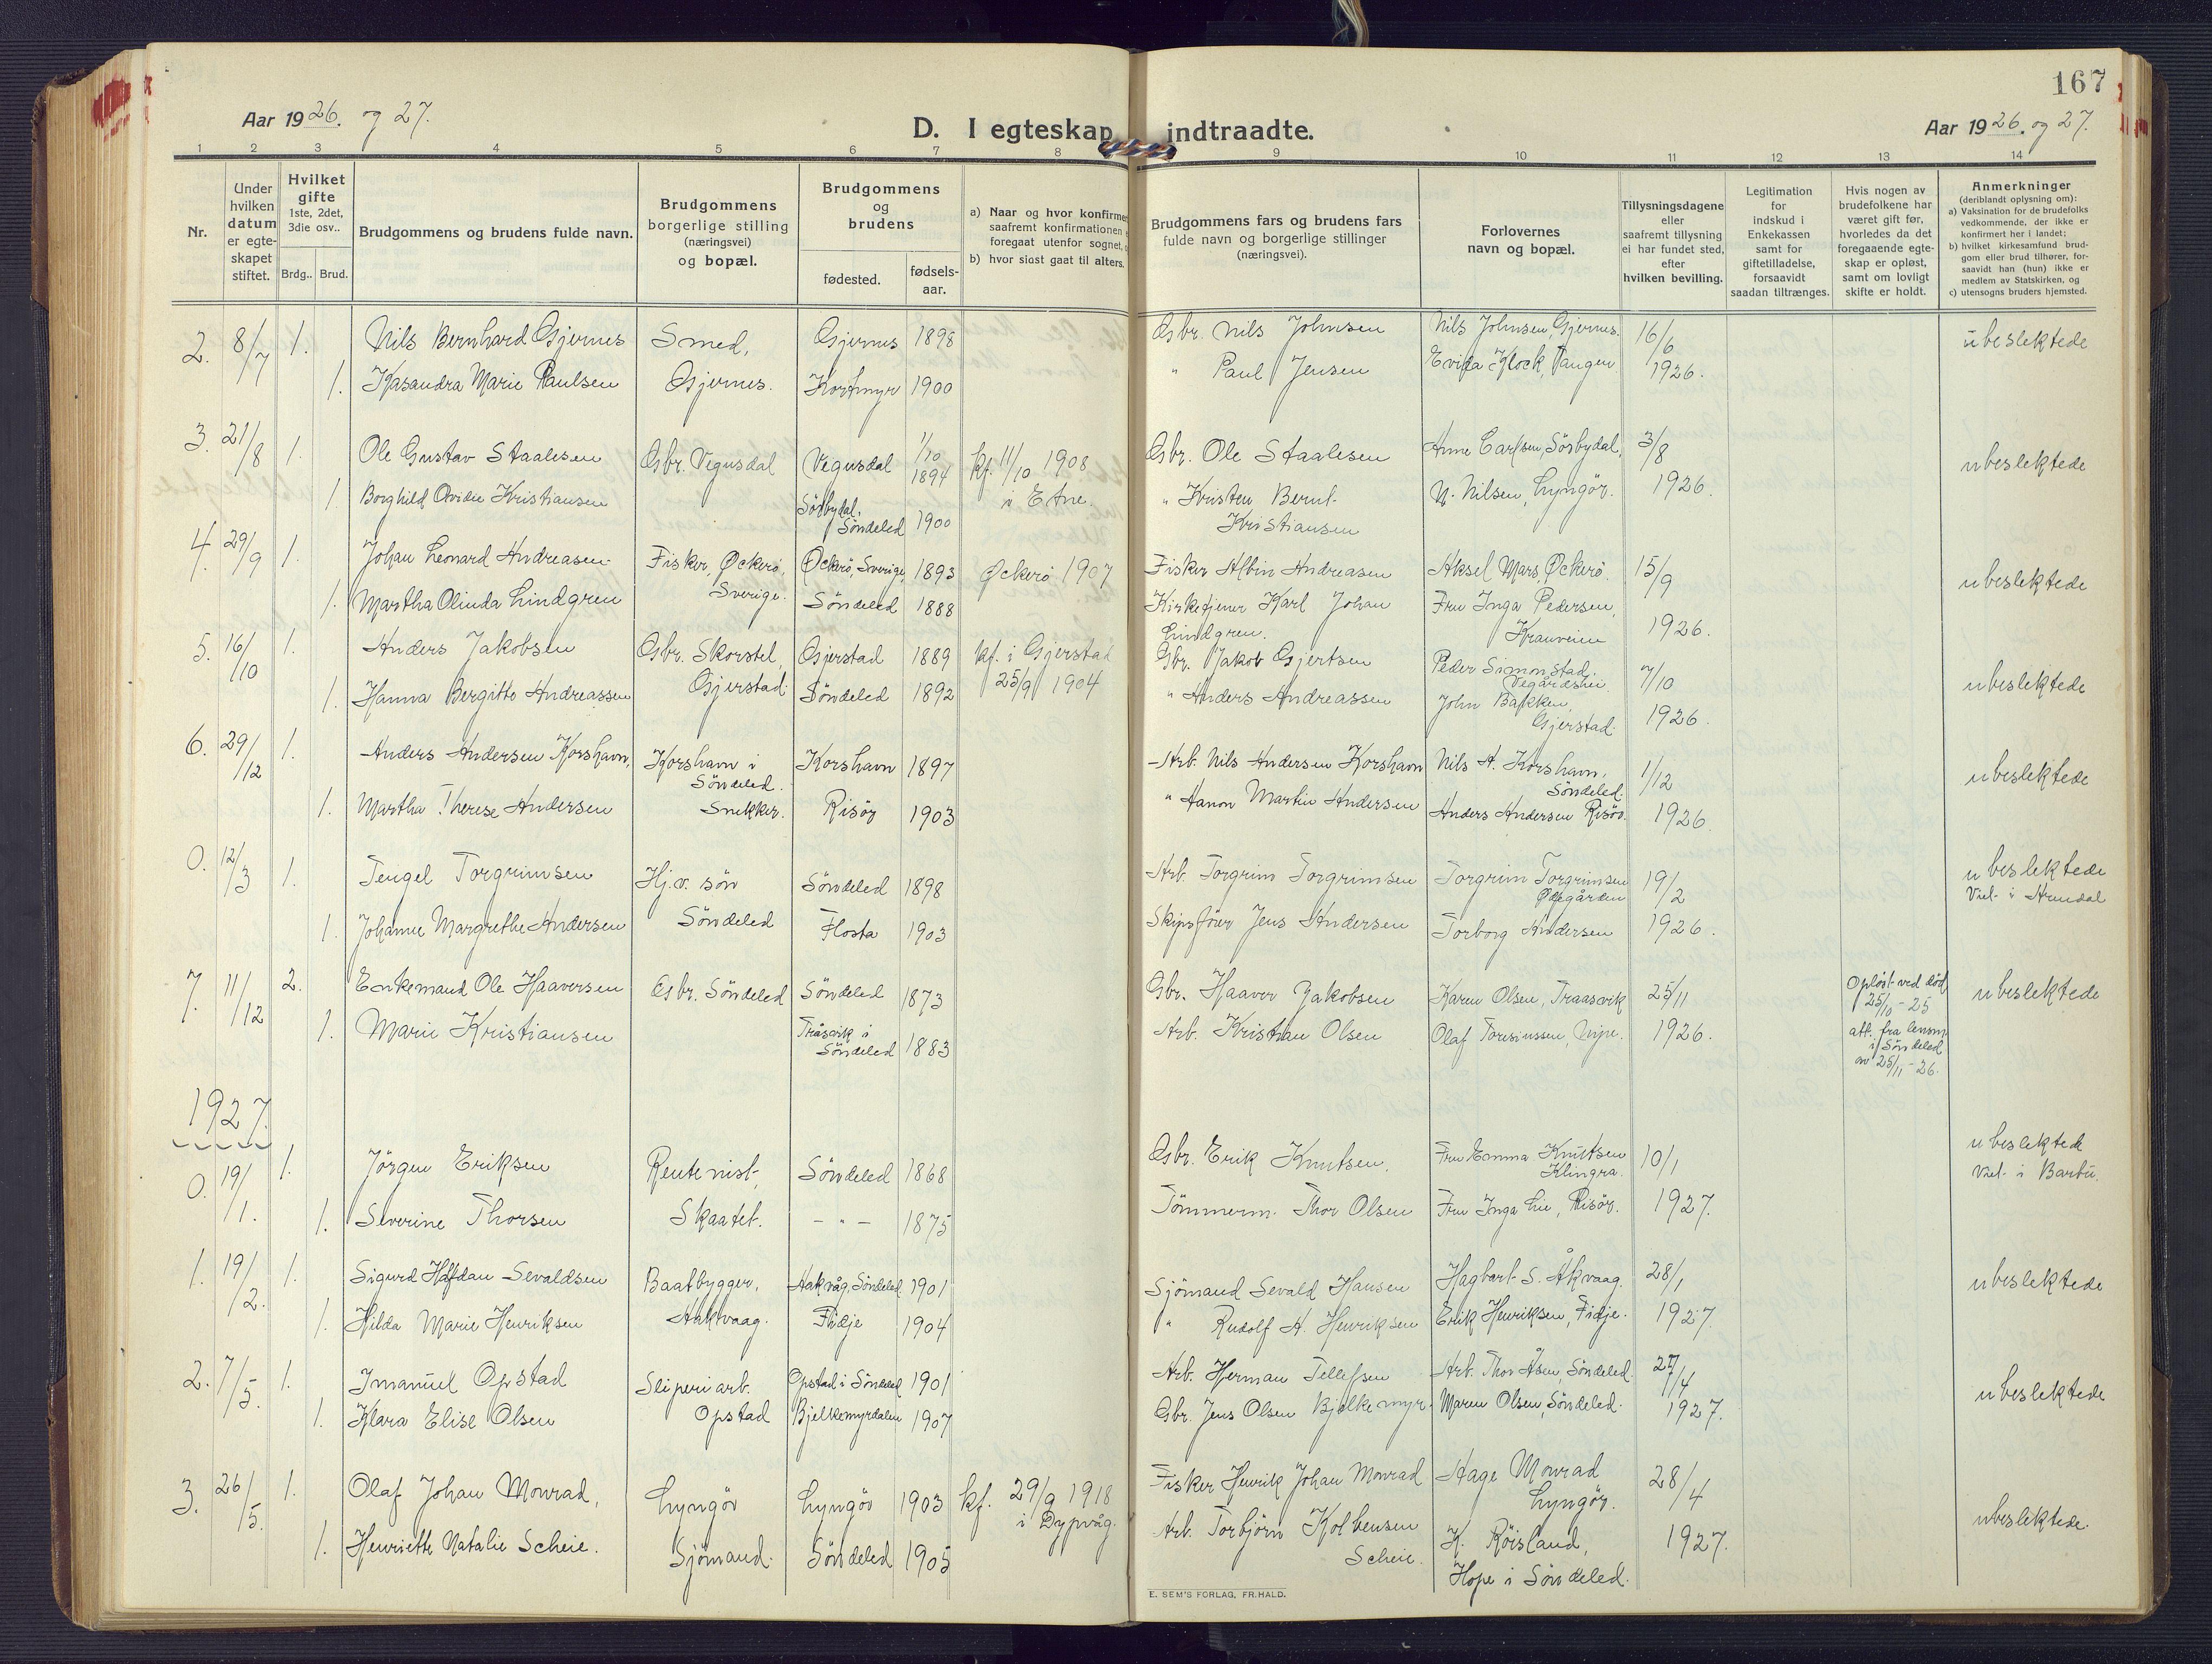 167
Aar 1926. og 27.
D. I egteskap indtraadte.
Aar 1926. og 27.
1 2 3 4 5 6 7 8 9 10 11 12 13 14
Nr.
Under hvilken datum er egteskapet stiftet.
Hvilket gifte 1ste, 2det, 3die osv..
Brdg.. Brud.
Brudgommens og brudens fulde navn.
Brudgommens borgerlige stilling (næringsvei) og bopæl.
Brudgommens og brudens
fødested. fødselsaar.
a) Naar og hvor konfirme
saafremt konfirmationen
foregaat utenfor sognet,
b) hvor sidst gaat til alters.
Brudgommens fars og brudens fars
fulde navn og borgerlige stillinger
(næringsvei).
Forlovernes
navn og bopæl.
Tillysningsdagene
eller
saafremt tillysning
ei har fundet sted,
efter
hvilken bevilling.
Legitimation
for
indskud i
Enkekassen
samt for
giftetilladelse,
forsaavidt
saadan tiltrænges.
Hvis nogen av
brudefolkene har
været gift før,
hvorledes da det
foregaaende egte-
skap er opløst,
samt om lovligt
skifte er holdt.
Anmerkninger
(deriblandt oplysning om):
a) Vaksination for de brudefolks
vedkommende, der ikke er
konfirmert her i landet;
b) hvilket kirkesamfund brud-
gom eller brud tilhører, for-
saavidt han (hun) ikke er
medlem av Statskirken, og
c) utensogns bruders hjemsted.
2. 8/7 1. Nils Bernhard Gjernes Smed, Gjernes 1898 Gbr. Nils Johnsen Nils Johnsen, Gjernes. 16/6 ubeslektede
1. Kasandra Marie Paulsen Gjernes. Kortmyr 1900 " Paul Jensen Klock, Tangen 1926.
3. 21/8 1. Ole Gustav Staalesen Gbr. Vegusdal Vegusdal 1/10 1894 kf. 11/10 1908 i Etne Gbr. Ole Staalesen Anne Carlsen, Sörbydal, 3/8 ubeslektede
1. Borghild Ovidie Kristiansen Sörbydal, Söndeled 1900 " Kristen Bernt Kristiansen N. Nilsen, Lyngör. 1926.
4. 29/9 1. Johan Leonard Andreasen Fisker, Øckerö, Sverige. Øckerö, Sverige 1893 Øckerö 1907 Fisker Albin Andreasen Aksel Mars, Øckerö. 15/9 ubeslektede
1. Martha Olinda Lindgren Söndeled 1888 Kirketjener Karl Johan Lindgren. Fru Inga Pedersen, Kranveien 1926.
5. 16/10 1. Anders Jakobsen Gbr. Skorstel, Gjerstad Gjerstad 1889 kf. i Gjerstad 25/9 1904 Gbr. Jakob Gjertsen Peder Simonstad, Vegårdshei. 7/10 ubeslektede
1. Hanna Bergitte Andreassen Söndeled 1892 " Anders Andreassen John Bakken, Gjerstad. 1926.
6. 29/12 1. Anders Andersen Korshavn, Korshavn i Söndeled. Korshavn 1897 Arb. Nils Andersen Korshavn Nils A. Korshavn, Söndeled. 1/12 ubeslektede
1. Martha Therese Andersen Snekker. Risör 1903 " Hanon Martin Andersen Anders Andersen Risör. 1926.
0. 12/3 1. Tengel Torgrimsen Hj.v. sön Söndeled 1898 Arb. Torgrim Torgrimsen Torgrim Torgrimsen Ødegården 19/2 ubeslektede Viet i Arendal
1. Johanne Margrethe Andersen Söndeled Flosta 1903 Skipsförer Jens Andersen Torborg Andersen 1926.
7. 11/12 2. Enkemand Ole Haaversen Gbr. Söndeled Söndeled 1873 Gbr. Haaver Jakobsen Karen Olsen, Traasvik 25/11 Opløst ved död 25/10-25 att. fra lensm. i Söndeled av 25/11-26. ubeslektede
1. Marie Kristiansen Tråsvik i Söndeled 1883 Arb. Kristian Olsen Olaf 1926.
1927.
0. 19/1. 1. Jörgen Eriksen Rentenist, Söndeled 1868 Gbr. Erik Knutsen. Fru Emma Knutsen Klingra. 10/1 ubeslektede Viet i Barbu.
1. Severine Thorsen Skaatet. - " - 1875 Tömmerm. Thor Olsen Fru Inga Lie, Risör. 1927.
1. 19/2. 1. Sigurd Halfdan Sevaldsen Baatbygger, Aakvåg, Söndeled 1901 Sjömand Sevald Hansen Hagbart S. Åkvaag. 28/1 ubeslektede
1. Hilda Marie Henriksen Aakvaag. Fidje 1904 " Rudolf A. Henriksen Erik Henriksen, Fidje. 1927.
2. 7/5. 1. Imanuel Opstad Sliperiarb. Opstad i Söndeled 1901 Arb. Herman Tellefsen Arb. Thor Åsen, Söndeled. 27/4 ubeslektede
1. Klara Elise Olsen Opstad Bjelkemyrdalen 1907 Gbr. Jens Olsen Bjelkemyr. Maren Olsen, Söndeled. 1927.
3. 26/5. 1. Olaf Johan Monrad, Lyngör Lyngör 1903 kf. 29/9 1918 i Dypvåg. Fisker Henrik Johan Monrad Hage Monrad Lyngör. 28/4 ubeslektede.
1. Henriette Natalie Scheie. Sjömand. Söndeled 1905 Arb. Torbjörn Kolbensen Scheie. K. Röisland, Hope i Söndeled. 1927.
E. SEM'S FORLAG, FR.HALD.